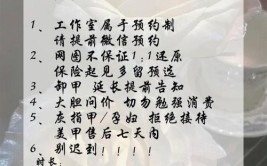 1、工作室属于预约制
请提前微信预约
2、网图不保证1:1还原
保险起见多留预选
3、卸甲 延长提前告知
4、大胆问价 切勿勉强消费
5、灰指甲/孕妇 拒绝接待
美甲售后七天内
6、别迟到!!!!
时长: